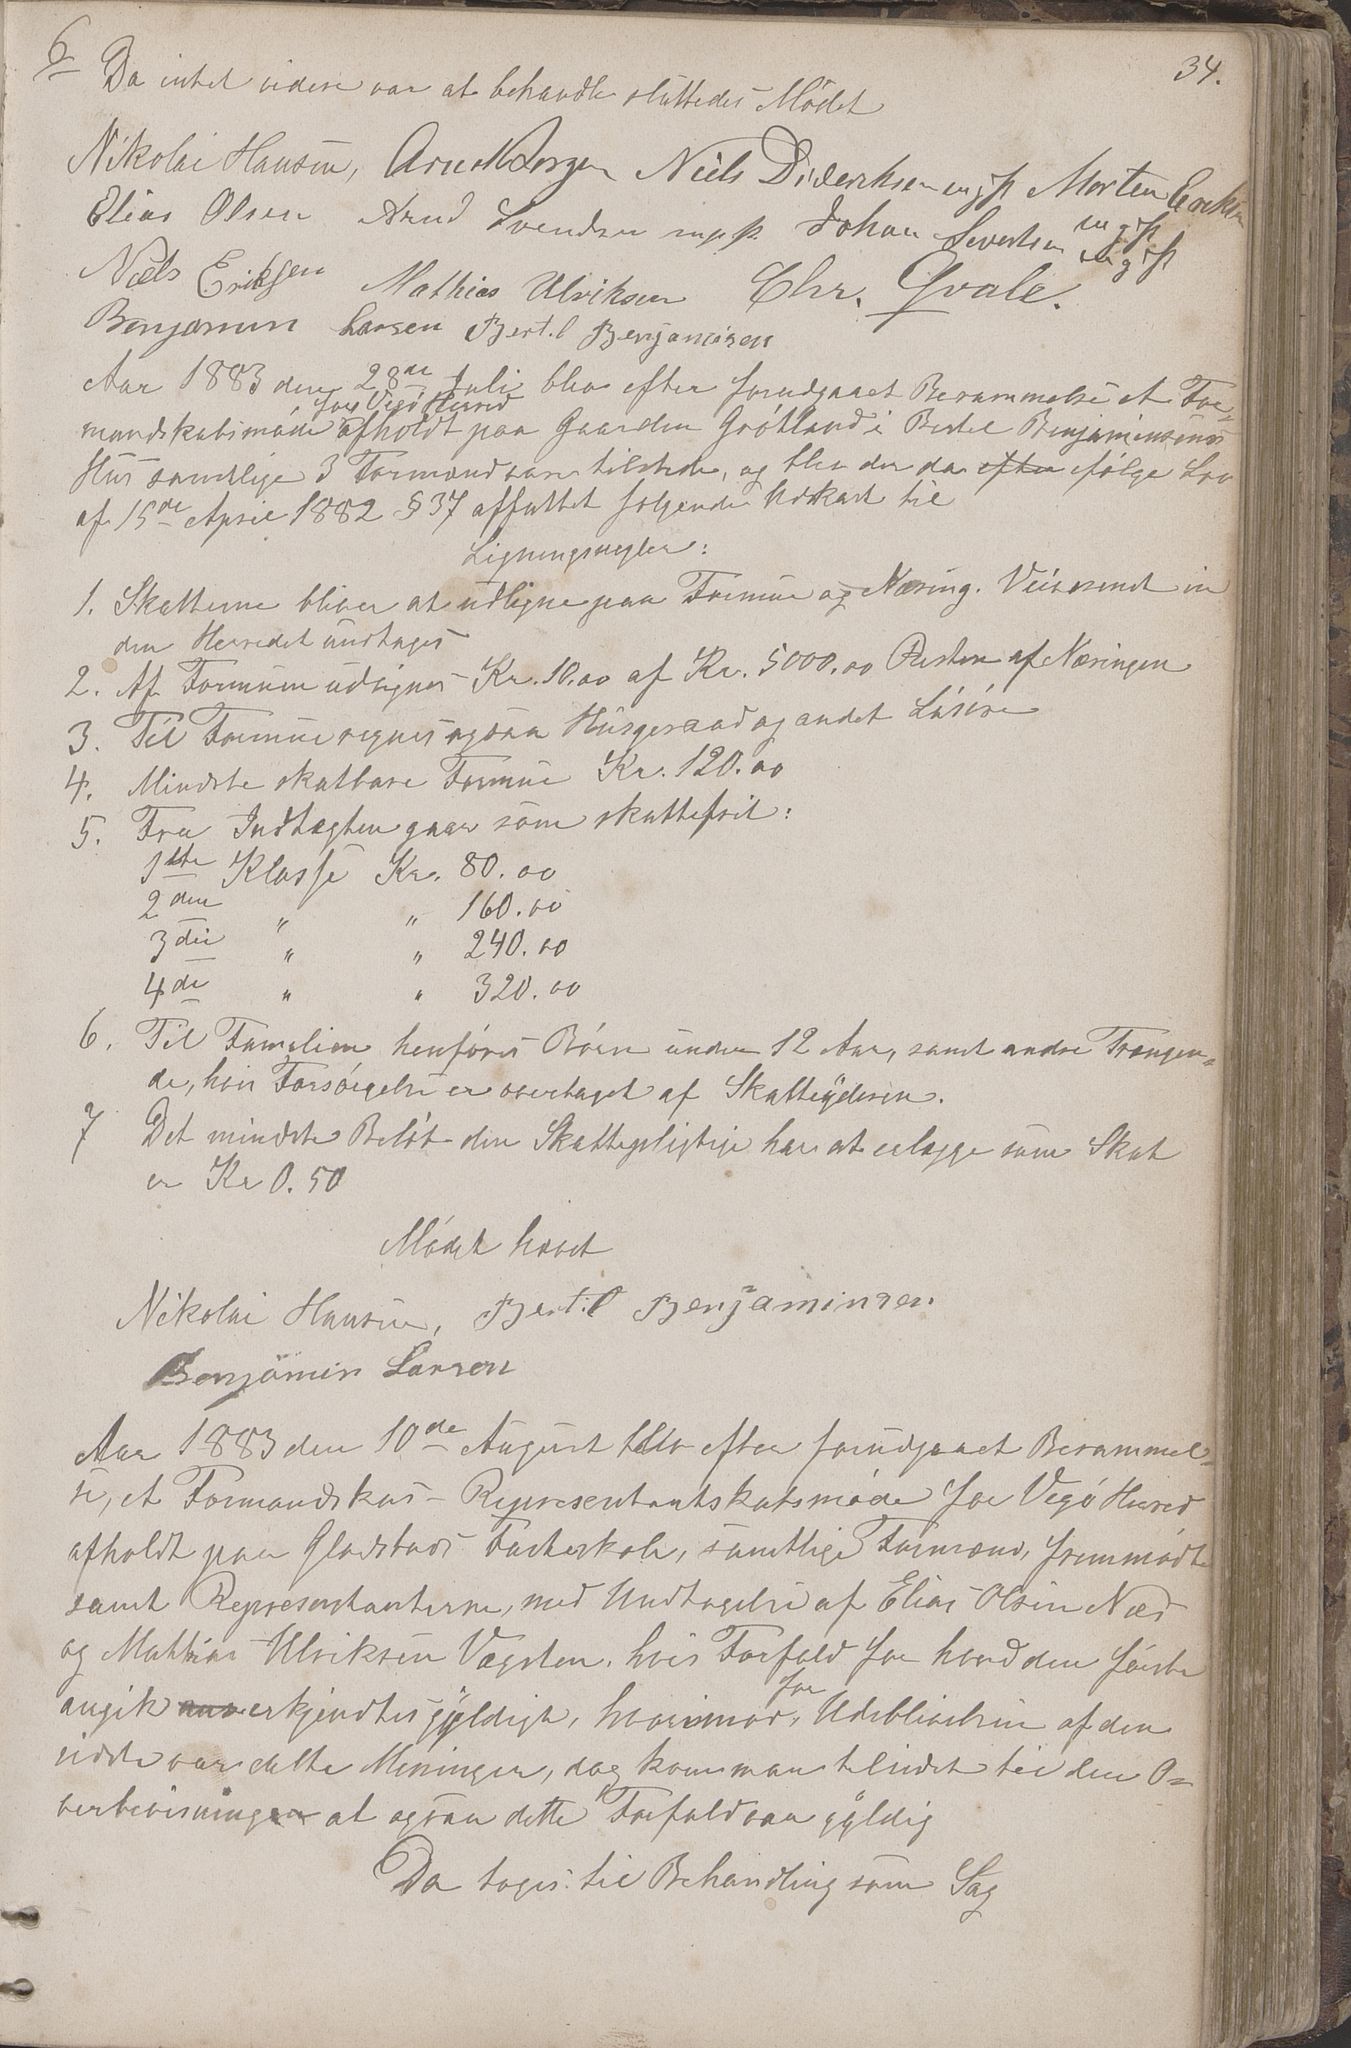 34.
6 Da intet videre var at behandle sluttedes Mødet
Nikolai Hansen, Arnt Norgen Niels Dideriksen m/p Morten Eriksen m/p
Elias Olsen Arnd Svendsen m.p.p. Johan Sivertsen m/p
Niels Eriksen Mathias Ulriksen Chr. Qvale.
Benjamin Larsen Bertil Benjaminsen
Aar 1883 den 28de Juli blev efter forudgaaet Berammelse et For-
for Vegø Herred
mandskabsmøde afholdt paa Gaarden Grøtland i Bertel Benjaminsens
Hus samtlige 3 Formænd var tilstede, og blev der da efter følge Lov
af 15de April 1882 § 37 affattet følgende Udkast til
Ligningsregler:
1. Skatterne bliver at udligne paa Formue og Næring. Veivæsenet in
den Herredet undtages
2. Af Formuen udlignes Kr. 10.00 af Kr. 5000.00 Resten af Næringen
3. Til Formue regnes ogsaa Husgeraad og andet Løsøre
4. Mindste skatbare Formue Kr. 120.00
5. Fra Indtægten gaar som skattefrit:
1ste Klasse Kr. 80.00
2den " " 160.00
3die " " 240.00
4de " " 320.00
6. Til Familien henføres Børn under 12 Aar, samt andre Trængen-
de, hvis Forsørgelse er overtaget af Skatteyderen.
7 Det mindste Beløb den Skattepligtige har at erlægge som Skat
er Kr 0.50
Mødet hævet
Nikolai Hansen, Bertil Benjaminsen
Benjamin Larsen
Aar 1883 den 10de August blev efter forudgaaet Berammel-
se, et Formandskabs- Representantskabsmøde for Vegø Herred
afholdt paa Gladstad Fasteskole, samtlige Formænd, fremmødte
samt Representanterne, med Undtagelse af Elias Olsen Næs
og Mathias Ulriksen Vægsten, hvis Forfald for hvad den første
angik erkjendtes gyldigt, hvorimod, for Udeblivelsen af den
sidste var delte Meninger, dog kom man tilsidst til den O-
verbevisningen at ogsaa dette Forfald var gyldig
Da toges til Behandling som Sag